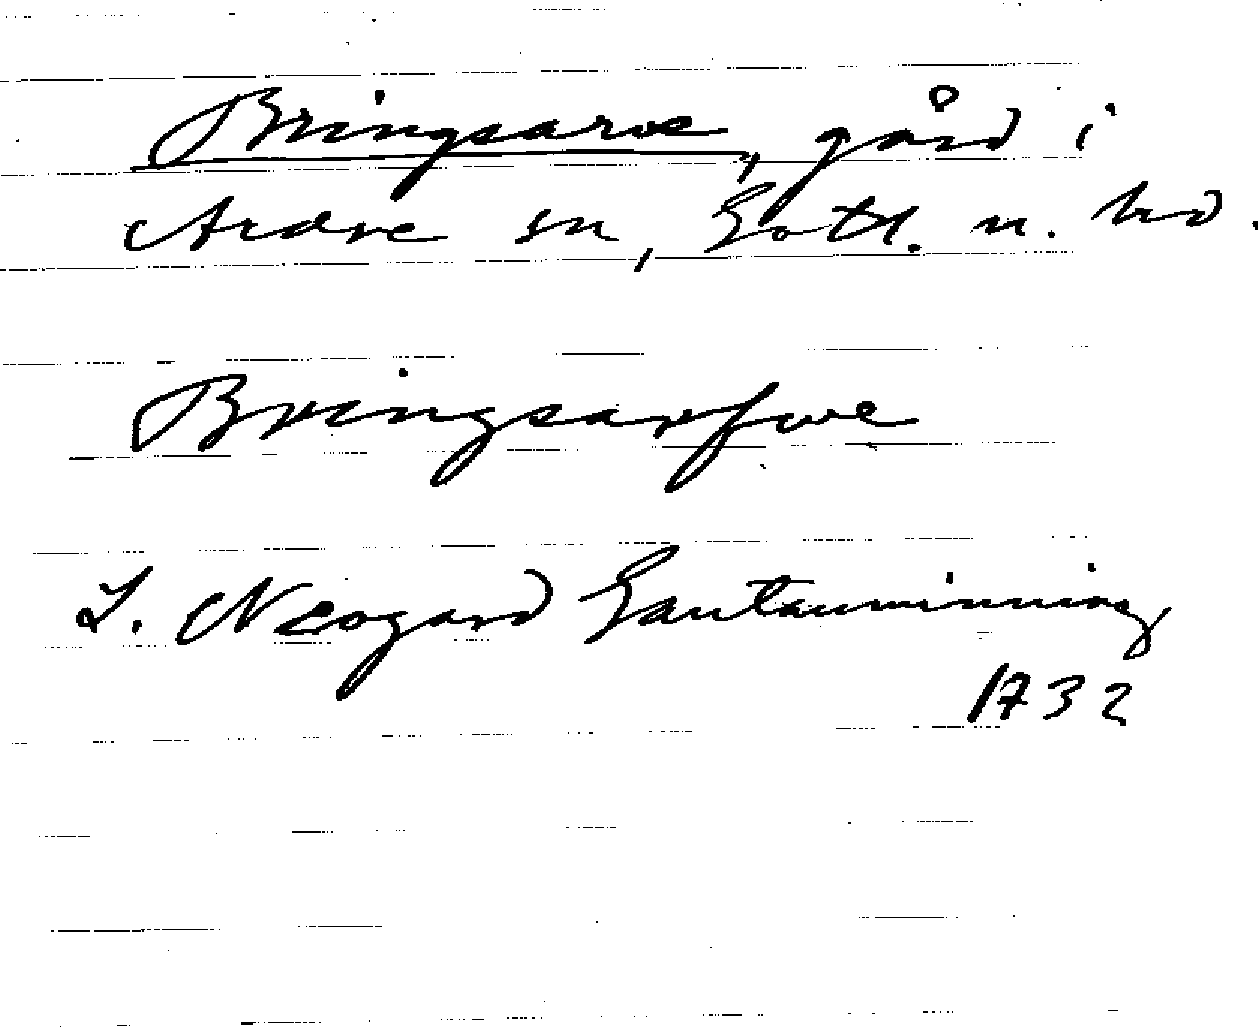 Bringsarve, gård i
Ardre sn, Gotl. n. hd.
Bringsarfwe
J. Neogard Gautauminning
1732